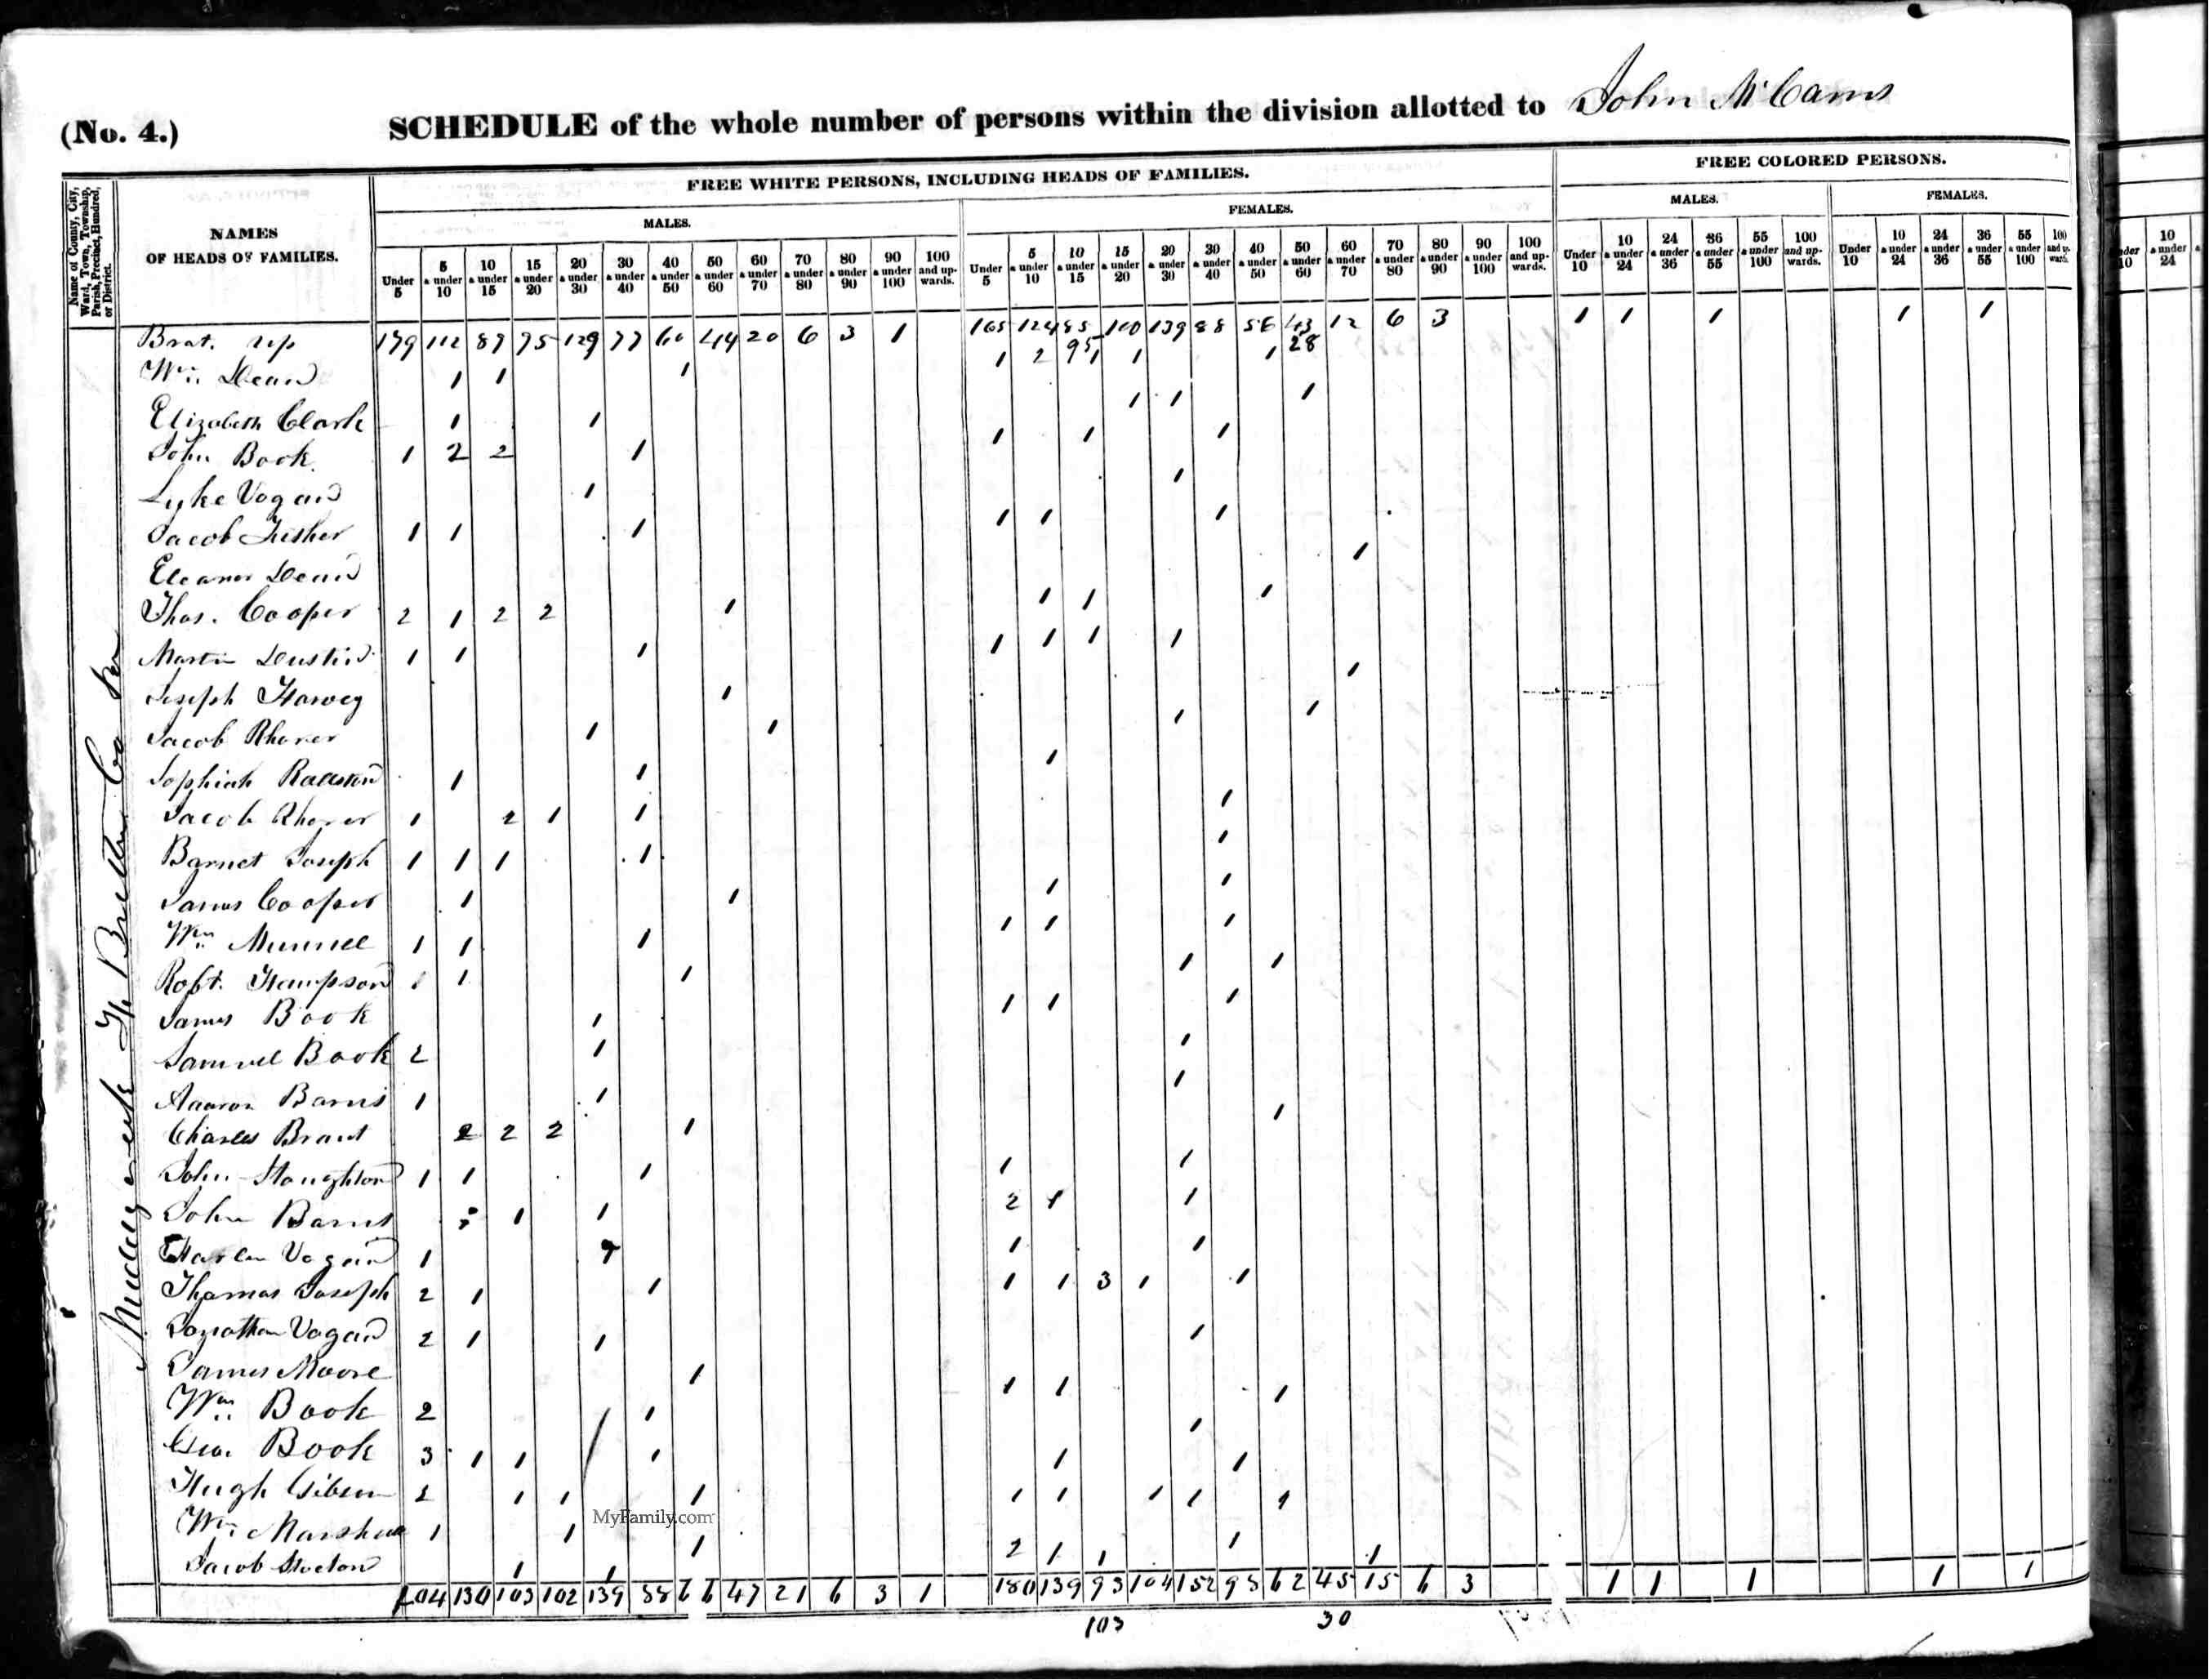 (No. 4.) SCHEDULE of the whole number of persons within the division allotted to John McCams
FREE WHITE PERSONS, INCLUDING HEADS OF FAMILIES. FREE COLORED PERSONS.
Name of County, City, Ward, Town, Township, Parish, Precinct, Hundred, or District.
NAMES OF HEADS OF FAMILIES.
MALES. FEMALES. MALES. FEMALES.
Under 5 5 & under 10 10 & under 15 15 & under 20 20 & under 30 30 & under 40 40 & under 50 50 & under 60 60 & under 70 70 & under 80 80 & under 90 90 & under 100 100 and upwards. Under 5 5 & under 10 10 & under 15 15 & under 20 20 & under 30 30 & under 40 40 & under 50 50 & under 60 60 & under 70 70 & under 80 80 & under 90 90 & under 100 100 and upwards. Under 10 10 & under 24 24 & under 36 36 & under 55 55 & under 100 100 and upwards. Under 10 10 & under 24 24 & under 36 36 & under 55 55 & under 100 100 and upwards.
Brot. up 179 112 87 95 129 77 60 44 20 6 3 1 165 124 85 100 139 88 56 43 12 6 3 1 1 1 1 1
95 28
Wm. Dean 1 1 1 1 2 1 1 1
Elizabeth Clark 1 1 1 1 1
John Book 1 2 2 1 1 1 1
Lyke Vogan 1 1
Jacob Fisher 1 1 1 1 1 1
Eleanor Dean 1
Thos. Cooper 2 1 2 2 1 1 1 1
Martin Dustin 1 1 1 1 1 1 1
Joseph Harvey 1 1
Jacob Rhorer 1 1 1 1
Sophiah 1 1 1
Jacob Rhorer 1 2 1 1 1
Barnet Joseph 1 1 1 1 1
James Cooper 1 1 1 1
Wm. 1 1 1 1 1 1
Robt. Hampson 1 1 1 1 1
James Book 1 1 1 1
Samuel Book 2 1 1
Aaaron Barns 1 1 1
Charles Brant 2 2 2 1 1
John Houghton 1 1 1 1 1
John Barns 1 1 2 1 1
Vogan 1 1 1
Thomas Joseph 2 1 1 1 1 3 1 1
Jonathan Vogan 2 1 1 1
James Moore 1 1 1 1
Wm. Book 2 1 1
Geo. Book 3 1 1 1 1 1
Hugh Gibson 2 1 1 1 1 1 1 1 1
Wm. Marshall 1 1 1 2 1 1 1
Jacob Stocton 1 1 1
204 130 103 102 139 88 66 47 21 6 3 1 180 139 93 104 152 98 62 45 15 6 3 1 1 1 1 1
103 30
MyFamily.com